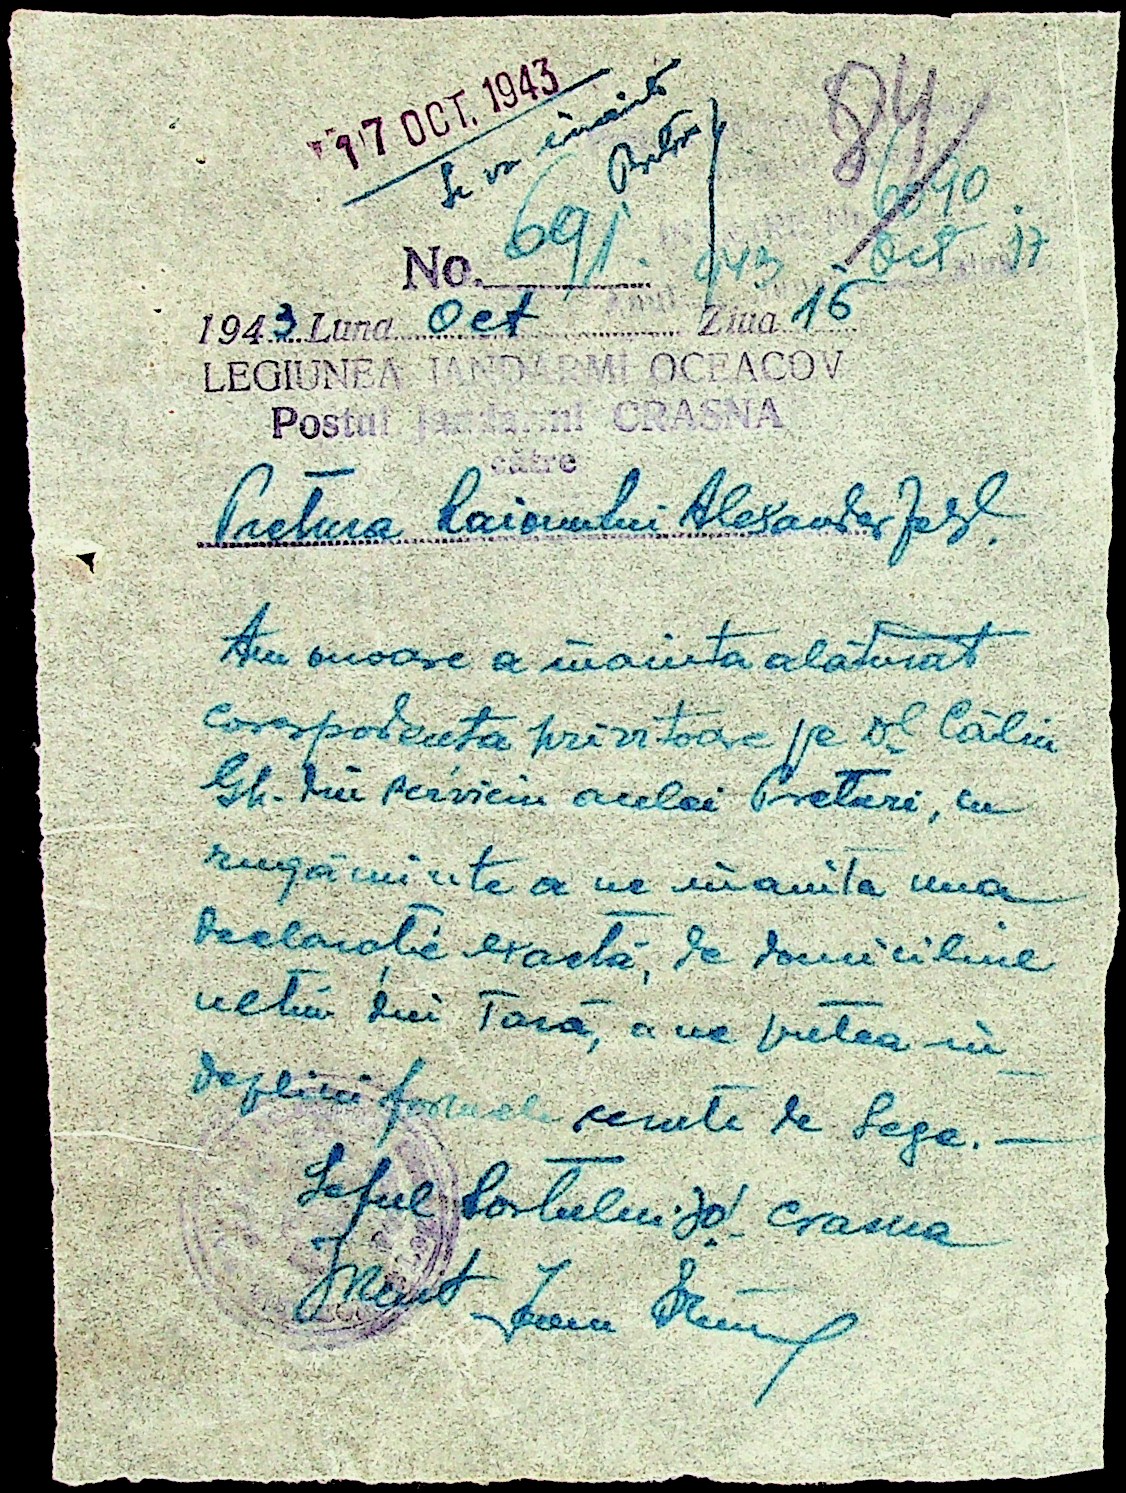 17 OCT. 1943
Se va înainta
84
6090
No. 691.
943 Oct 17
1943 Luna Oct Ziua 15
LEGIUNEA JANDARMI OCEACOV
Postul jandarmi CRASNA
către
Pretura Raionului Alexanderfeld.
Am onoare a inainta alăturat
corespodenta privitoare pe Dl Călin
Gh. din serviciu acelei Preturi, cu
rugăminte a ne inainta una
Declaratie exactă, de domiciliue
din Tară, a ne putea in
deplini formele cerute de Lege. —
Seful Postului Jd. Crasna
Ioan